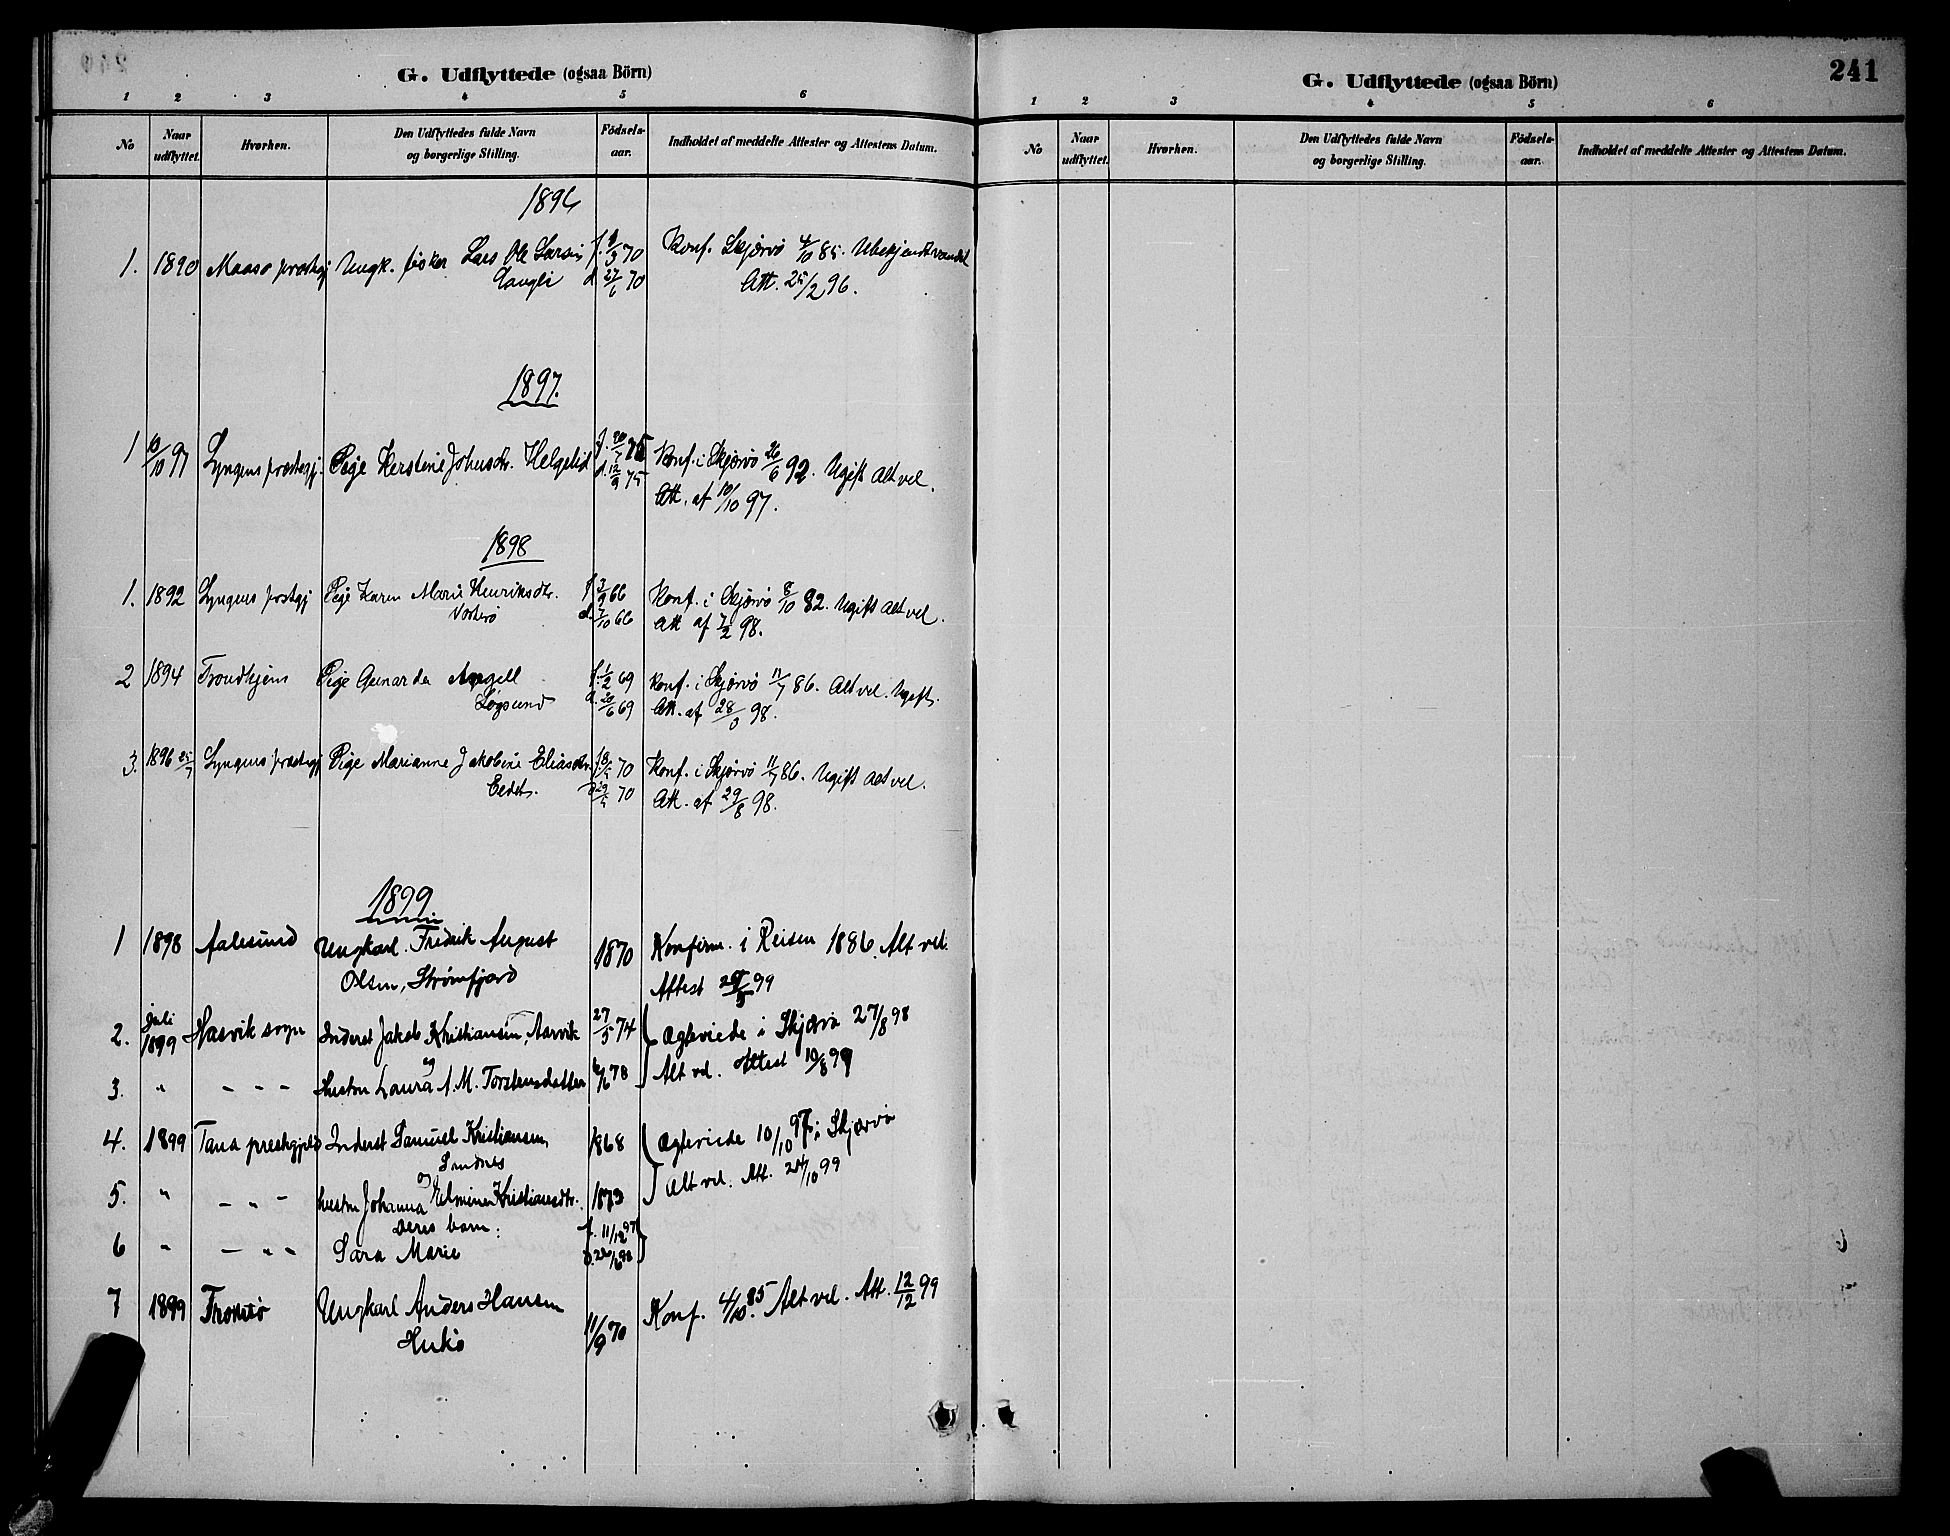 G. Udflyttede (ogsaa Börn)
1 2 3 4 5 6
No Naar udflyttet. Hvorhen. Den Udflyttedes fulde Navn og borgerlige Stilling. Födsels-aar. Indholdet af meddelte Attester og Attestens Datum.
1896
1. 1890 Maasø prestegj Ungk. fisker Lars Ole Larsen f. 70 Konf. Skjervø 4/10 85. Ubekjendt vandel
d. 27/6 70 Att. 25/2 96.
1897.
1 10/10 97 Lyngens prestegj. Pige Kerstine Johnsdtr. Helgelid f. 75 Konf. i Skjervø 26/6 92. Ugift Alt vel.
d. 12/9 75 Att. af 10/10 97.
1898
1. 1892 Lyngens prstgj Pige Karen Marie Henriksdtr. f. 3/9 66 Konf. i Skjervø 8/10 82. Ugift Alt vel.
Vorterø d. 7/10 66 Att af 7/2 98.
2 1894 Trondhjem Pige Gunarda Angell f. 1/2 69 Konf. i Skjervø 11/7 86. Alt vel. Ugift.
Løgsund d. 20/6 69 Att. af 28/3 98.
3. 1896 25/7 Lyngens prestegj Pige Marianne Jakobine Eliasdtr. f. 70 Konf. i Skjervø 11/7 86. Ugift Alt vel.
Eidet. d. 70 Att. af 29/8 98.
1899
1 1898 Aalesund Ungkarl. Fredrik August 1870 Konfirm. i Reisen 1886. Alt vel.
Olsen, Strømfjord Attest 99
2. Juli 1899 Hasvik sogn Inderst Jakob Kristiansen, Aarvik 27/5 74 Ægteviede i Skjervø 27/8 98
og
3. " - - - Hustru Laura A. M. Torstensdatter 78 Alt vel. Attest 10/8 99
4. 1899 Tana prestegjeld Inderst Samuel Kristiansen, 1868 Ægteviede 10/10 97 i Skjervø
Sandnes
og
5. " - " - hustru Johanna Elmine Kristiansdtr. 1873 Alt vel. Att. 24/10 99
Deres barn: f. 11/12 97
6 " - " - Sara Marie D. 98
7 1899 Tromsø Ungkarl Anders Hansen 11/9 70 Konf. 4/10 85. Alt vel. Att. 12/12 99
Hukø
241
G. Udflyttede (ogsaa Börn)
1 2 3 4 5 6
No Naar udflyttet. Hvorhen. Den Udflyttedes fulde Navn og borgerlige Stilling. Födsels-aar. Indholdet af meddelte Attester og Attestens Datum.